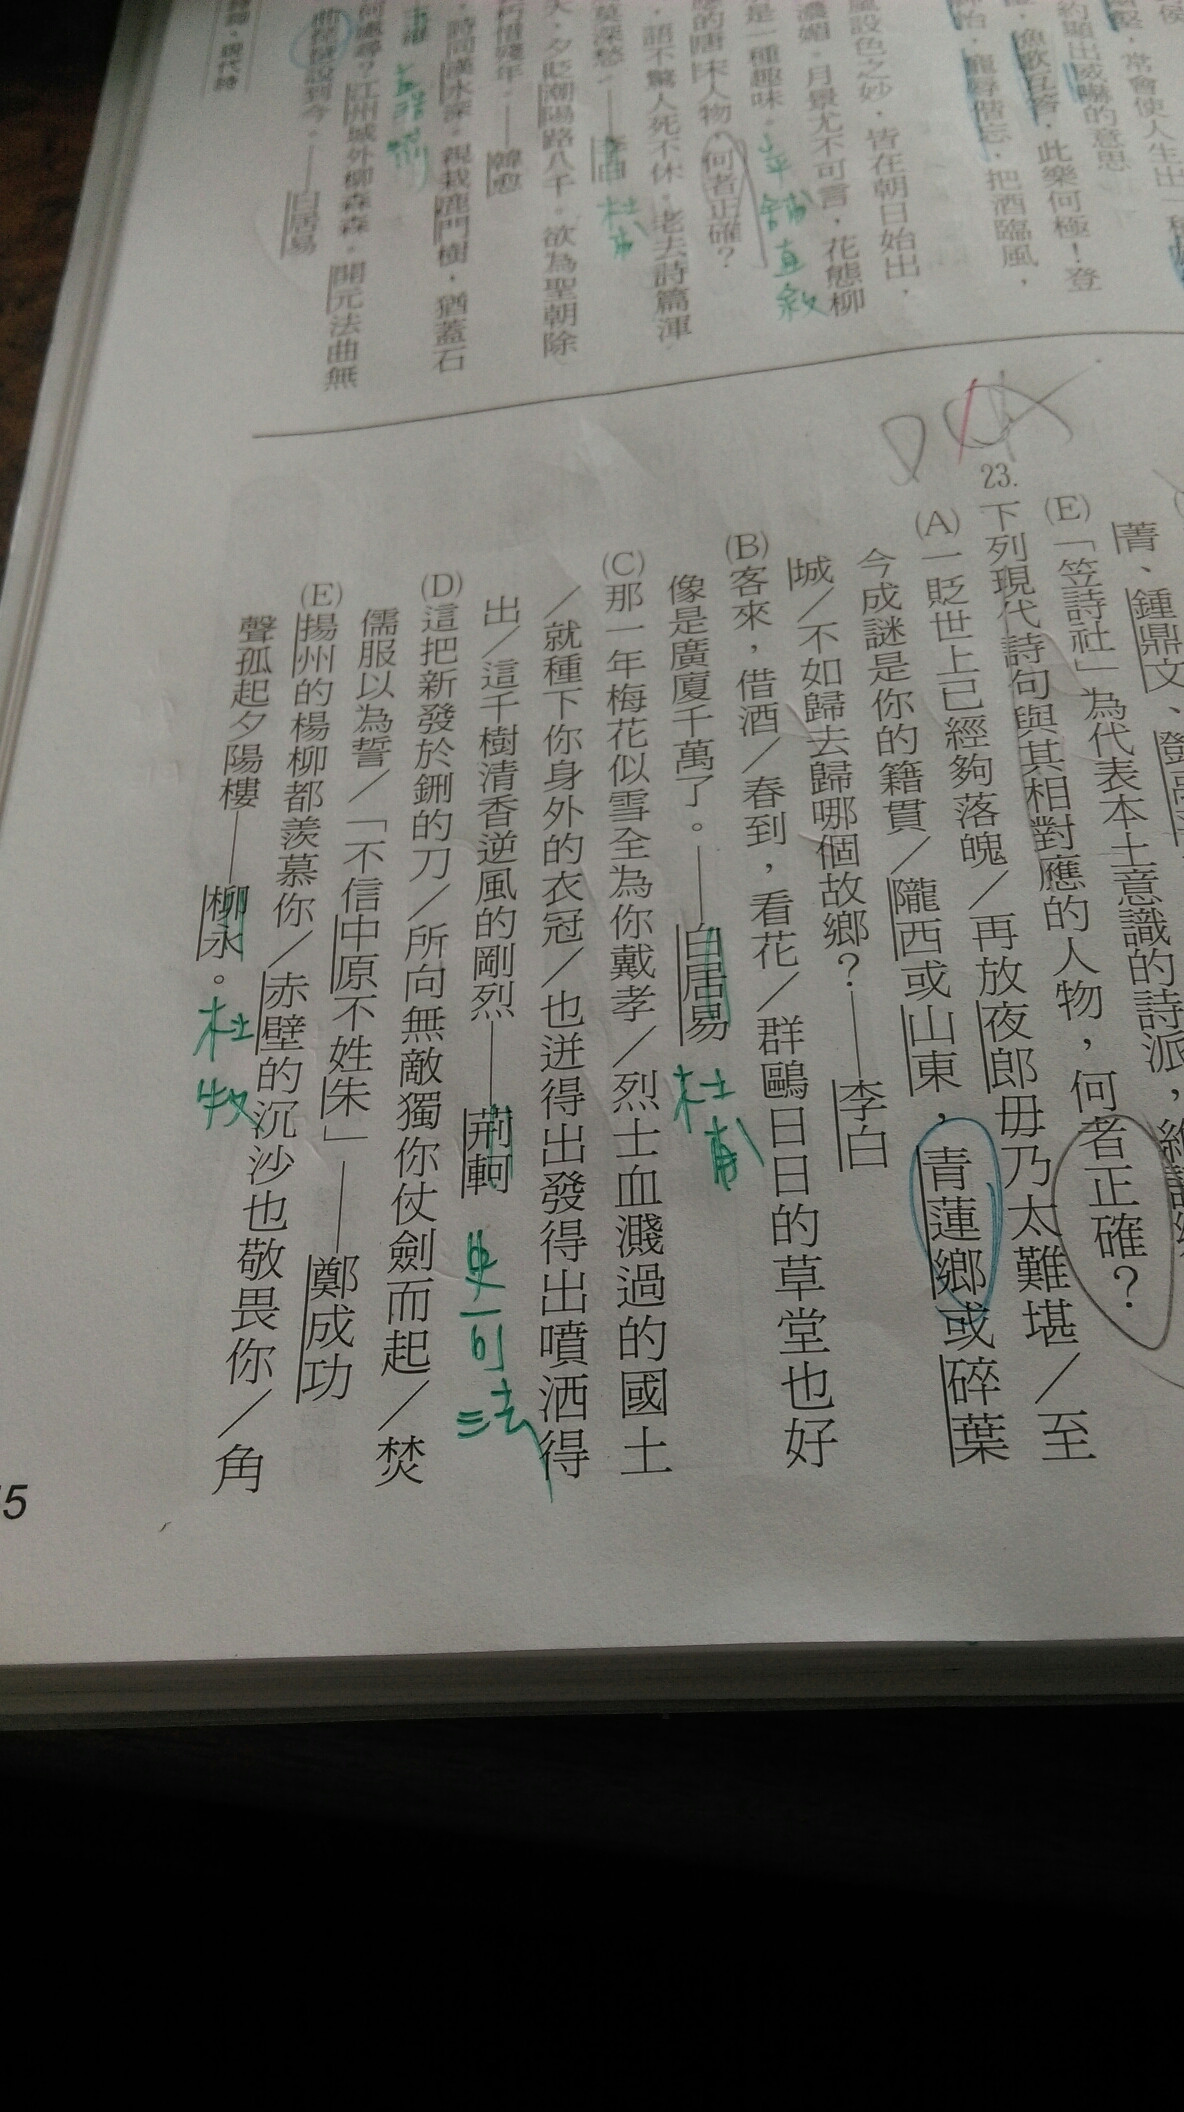 侯
常會使人生出一種
約顯出威嚇的意思
漁歌互答，此樂何極！登
寵辱偕忘，把酒臨風，
設色之妙，皆在朝日始出，
濃媚，月景尤不可言，花態柳
是一種趣味。
平鋪直敘
的唐宋人物，何者正確？
語不驚人死不休，老去詩篇渾
莫深愁。——李白
杜甫
夕貶潮陽路八千。欲為聖朝除
惜殘年。——韓愈
時同漢水深。親栽鹿門樹，猶蓋石
何處尋？江州城外柳森森。開元法曲無
說到今。——白居易
現代詩
菁、鍾鼎文、
(E)「笠詩社」為代表本土意識的詩派，
23.下列現代詩句與其相對應的人物，何者正確？
(A)一貶世上已經夠落魄／再放夜郎毋乃太難堪／至
今成謎是你的籍貫／隴西或山東，青蓮鄉或碎葉
城／不如歸去歸哪個故鄉？——李白
(B)客來，借酒／春到，看花／群鷗日日的草堂也好
像是廣廈千萬了。——白居易 杜甫
(C)那一年梅花似雪全為你戴孝／烈士血濺過的國土
／就種下你身外的衣冠／也迸得出發得出噴洒得
出／這千樹清香逆風的剛烈——荊軻 史可法
(D)這把新發於鉶的刀／所向無敵獨你仗劍而起／焚
儒服以為誓／「不信中原不姓朱」——鄭成功
(E)揚州的楊柳都羨慕你／赤壁的沉沙也敬畏你／角
聲孤起夕陽樓——柳永。杜牧
5